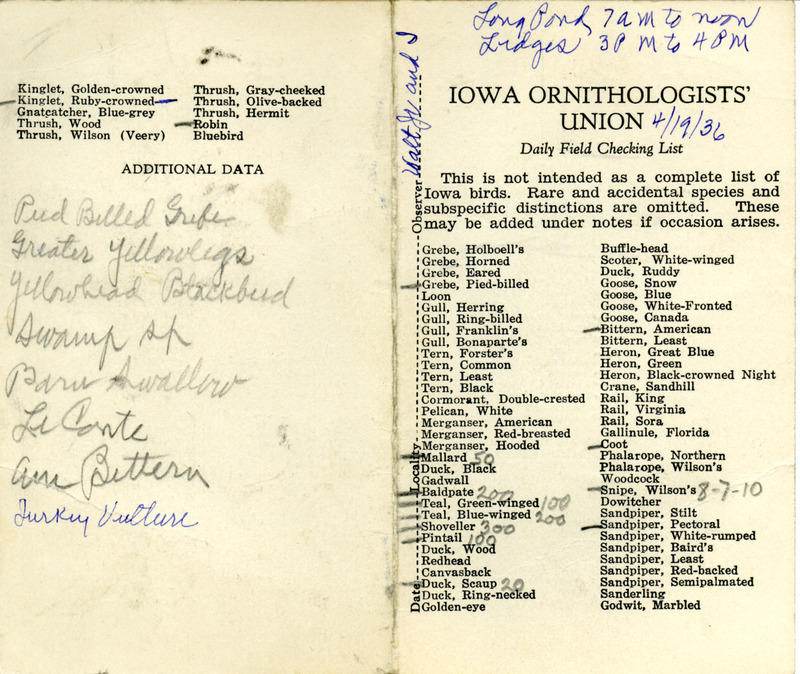 Kinglet, Golden-crowned
Kinglet, Ruby-crowned
Gnatcatcher, Blue-grey
Thrush, Wood
Thrush, Wilson (Veery)
Thrush, Gray-cheeked
Thrush, Olive-backed
Thrush, Hermit
Robin
Bluebird
ADDITIONAL DATA
Pied Billed Grebe
Greater Yellowlegs
Yellowhead Blackbird
Swamp sp
Barn Swallow
Le Conte
Am Bittern
Turkey Vulture
Long Pond, 7 am to noon
Lidges 3 P M to 4 P M
IOWA ORNITHOLOGISTS'
UNION 4/19/36
Daily Field Checking List
This is not intended as a complete list of
Iowa birds. Rare and accidental species and
subspecific distinctions are omitted. These
may be added under notes if occasion arises.
Date Locality Observer Walt Jr. and I
Grebe, Holboell's
Grebe, Horned
Grebe, Eared
Grebe, Pied-billed
Loon
Gull, Herring
Gull, Ring-billed
Gull, Franklin's
Gull, Bonaparte's
Tern, Forster's
Tern, Common
Tern, Least
Tern, Black
Cormorant, Double-crested
Pelican, White
Merganser, American
Merganser, Red-breasted
Merganser, Hooded
Mallard 50
Duck, Black
Gadwall
Baldpate 200
Teal, Green-winged 100
Teal, Blue-winged 200
Shoveller 300
Pintail 100
Duck, Wood
Redhead
Canvasback
Duck, Scaup 20
Duck, Ring-necked
Golden-eye
Buffle-head
Scoter, White-winged
Duck, Ruddy
Goose, Snow
Goose, Blue
Goose, White-Fronted
Goose, Canada
Bittern, American
Bittern, Least
Heron, Great Blue
Heron, Green
Heron, Black-crowned Night
Crane, Sandhill
Rail, King
Rail, Virginia
Rail, Sora
Gallinule, Florida
Coot
Phalarope, Northern
Phalarope, Wilson's
Woodcock
Snipe, Wilson's 8-7-10
Dowitcher
Sandpiper, Stilt
Sandpiper, Pectoral
Sandpiper, White-rumped
Sandpiper, Baird's
Sandpiper, Least
Sandpiper, Red-backed
Sandpiper, Semipalmated
Sanderling
Godwit, Marbled